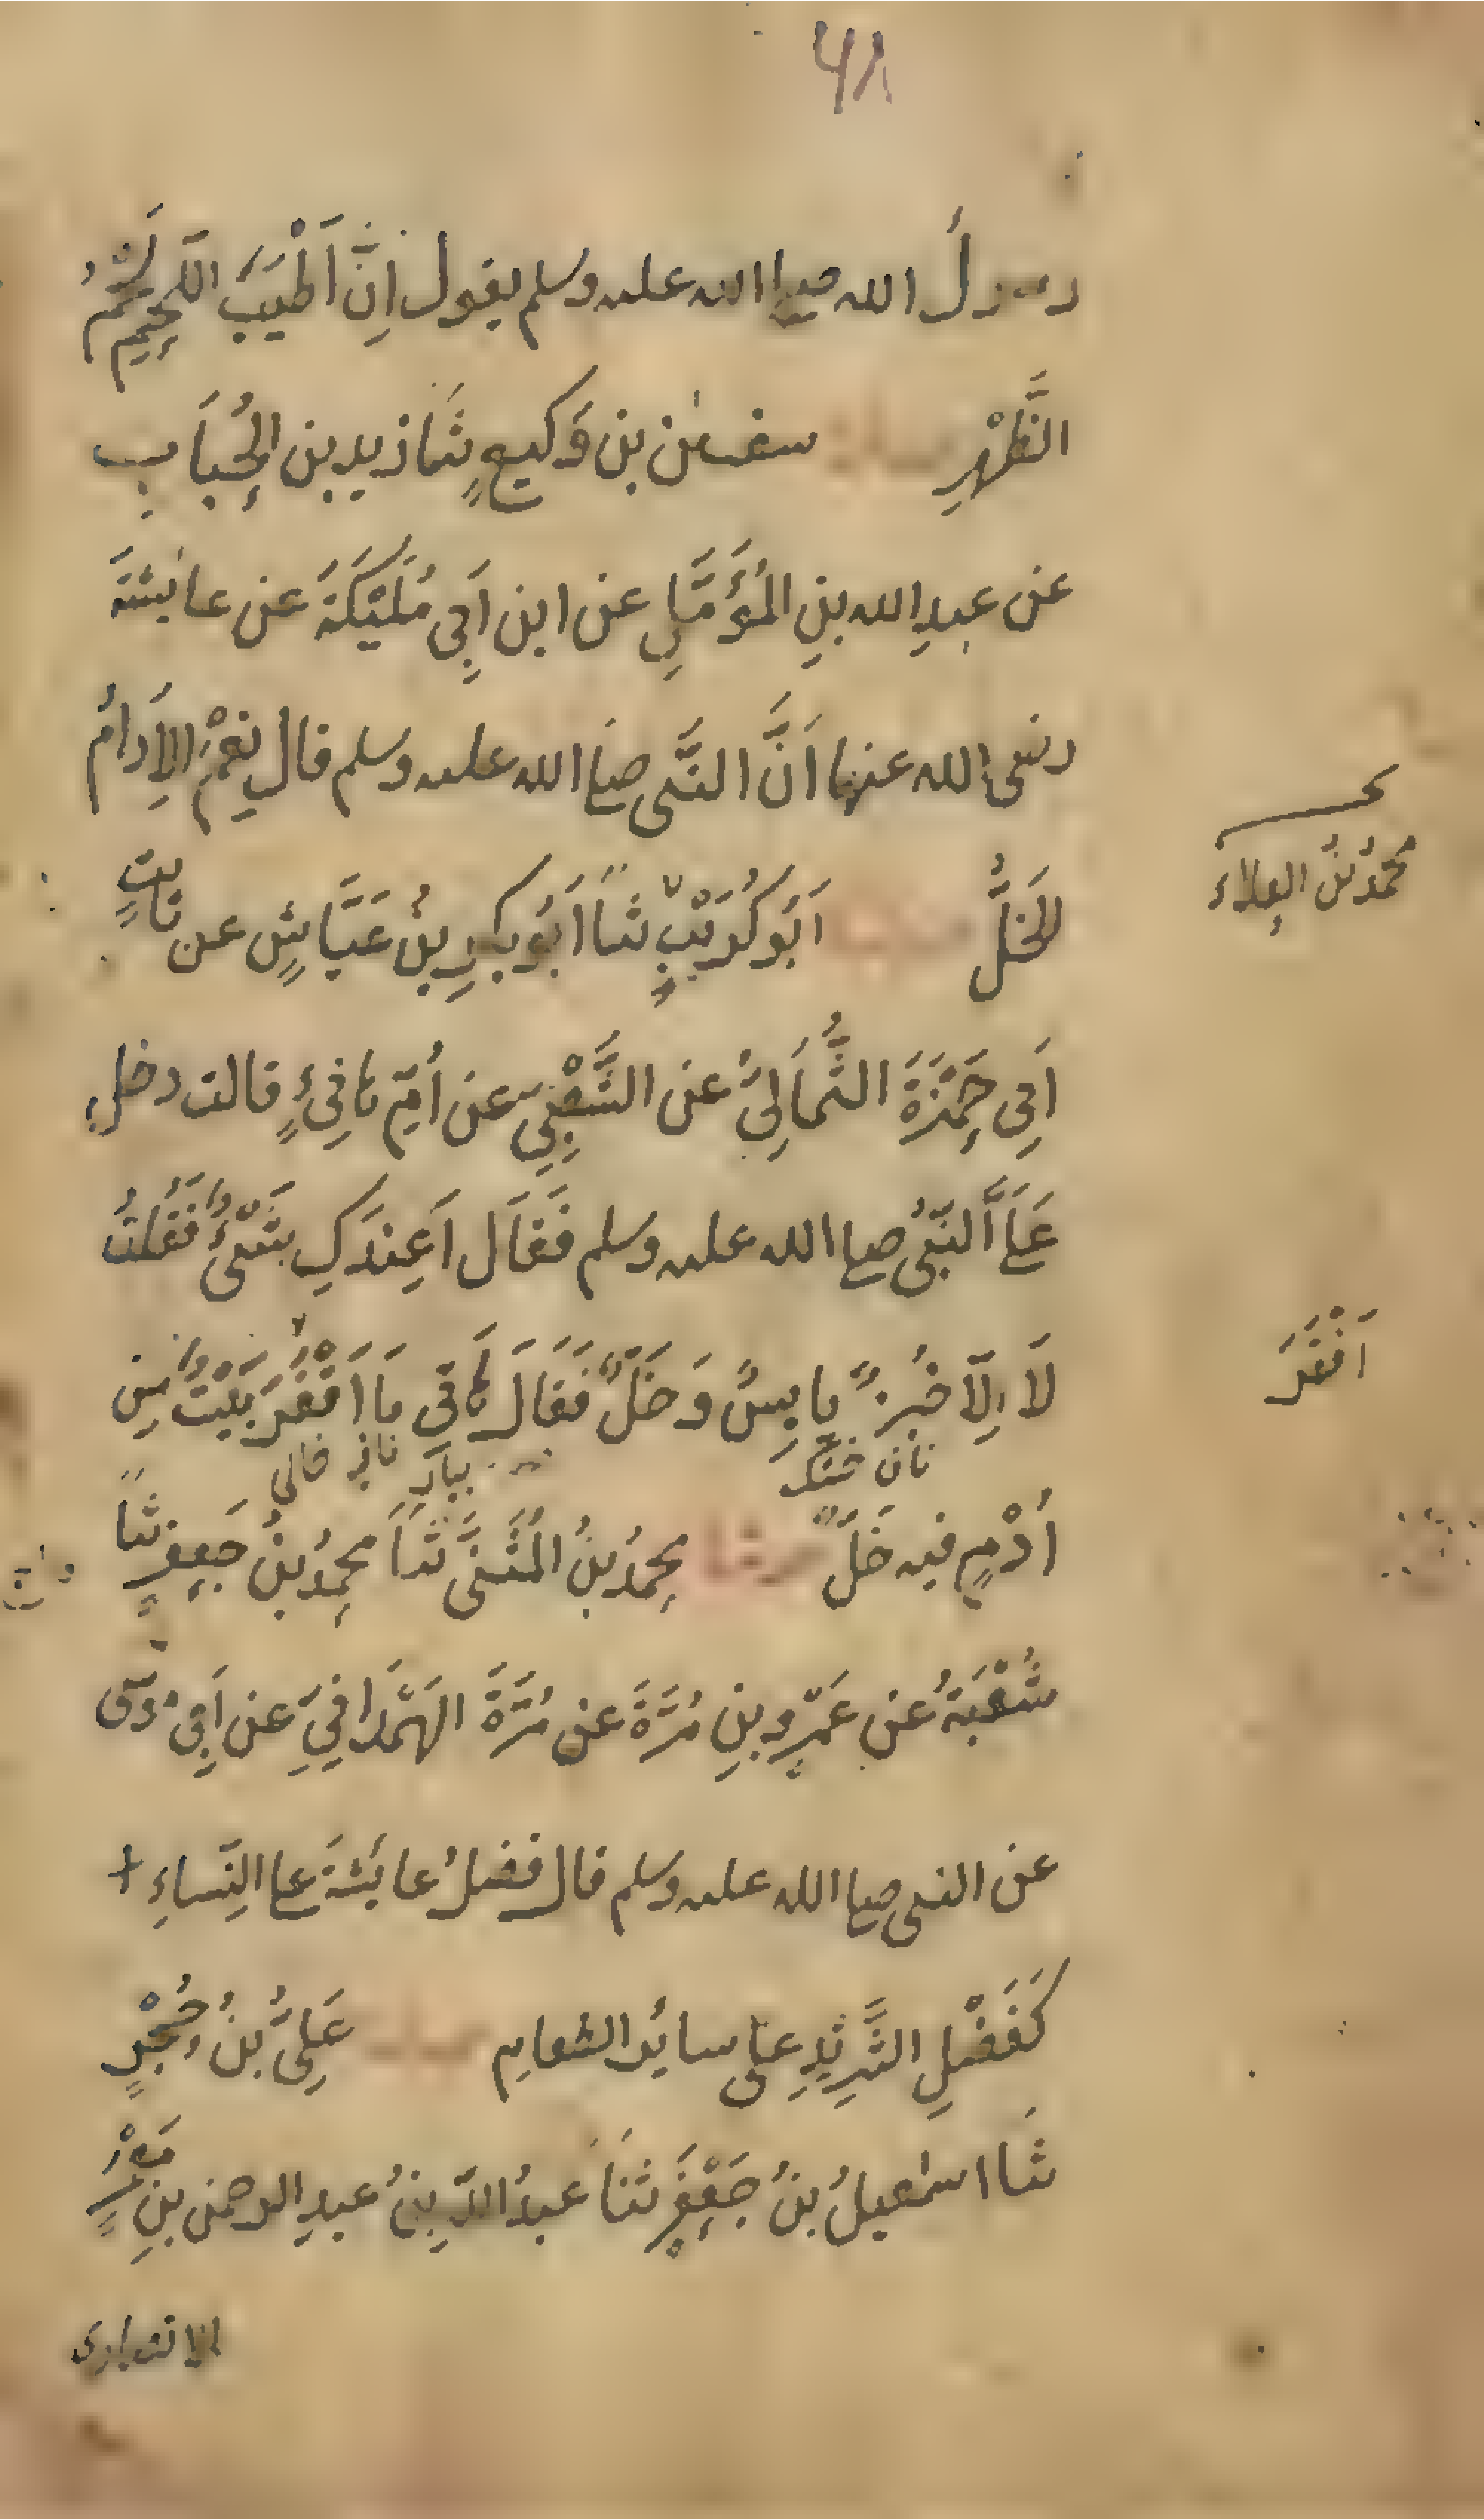 ٤٨
رسولُ الله صلى الله عليه وسلم يقول اِنَّ اَطْيَبَ اللَّحِمِ لَحْمُ
الظَّهْرِ حدثنا سفين بن وَكيعٍ ثَنا زيد بن الحُبَابِ
عن عبدِ الله بنِ المُؤَمَّلِ عن ابن اَبِي مُلَيْكَةَ عن عائشةَ
رضى الله عنها اَنَّ النَّبى صلى الله عليه وسلم قال نِعْمَ الاِدَامُ
الخَلُّ حدثنا اَبُو كُرَيْبٍ ثَنا اَبُو بكرِ بنُ عَيَّاشٍ عن ثابتٍ
محمدُ بنُ العلاء
اَبِى حَمْزَةَ الثُّمَالِيِّ عن الشَّعْبِيِّ عن اُمِّ هانِئٍ قالت دخل
عَلَىَّ النَّبىُّ صلى الله عليه وسلم فَقَال اَعِندَكِ شَىْءٌ فَقُلتُ
لَا اِلَّا خُبزٌ يابِسٌ وَخَلٌّ فَقَالَ هَاتِى مَا اَقْفَرَ بَيْتٌ مِن
اَفْقَرَ
نان خشك
بيار خالى
اُدْمٍ فيه خَلٌّ حدثنا محمدُ بنُ المُثَنَّى ثَنَا محمدُ بنُ جَعفرٍ ثنا
شُعْبَةُ عن عَمْرِو بنِ مُرَّةَ عن مُرَّةَ الهَمْدَانِيِّ عن اَبِى مُوسَى
عن النبى صلى الله عليه وسلم قال فضلُ عائشةَ على النِّساءِ
كَفَضْلِ الثَّرِيدِ على سائر الطعام حدثنا عَلِىُّ بنُ حُجْرٍ
ثَنا اسمٰعيلُ بنُ جَعْفَرٍ ثَنَا عبدُ اللهِ بنُ عبدِ الرحمن بنِ مَعْمَرٍ
الانصارى